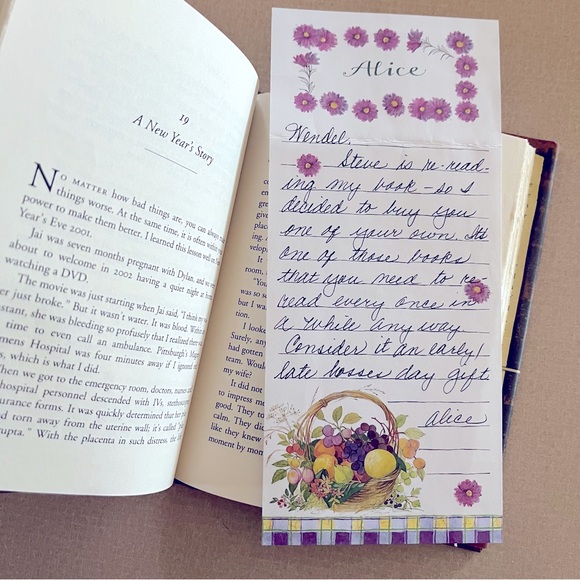 19
A New Year's Story
NO MATTER how bad things are, you can always
things worse. At the same time, it is often
power to make them better. I learned this lesson well on
Year's Eve 2001.
Jai was seven months pregnant with Dylan, and we
about to welcome in 2002 having a quiet night at
watching a DVD.
The movie was just starting when Jai said, "I think my
er just broke." But it wasn't water. It was blood. Within
stant, she was bleeding so profusely that I realized there
time to even call an ambulance. Pittsburgh's
mens Hospital was four minutes away if I ignored
s, which is what I did.
hen we got to the emergency room, doctors, nurses
hospital personnel descended with IVs,
surance forms. It was quickly determined that
d torn away from the uterine wall; it's called
upta." With the placenta in such distress, the
It
room,
"You
was so
but I wa
I looke
Surely, any
had gotten
team. Would
my wife?
It did not
to impress me
good. They to
calm. They did
like they knew
moment by mom
Alice
Wendel,
Steve is re-read-
ing my book - so I
decided to buy you
one of your own. Its
one of those books
that you need to re-
read every once in
a while anyway.
Consider it an early/
late bosses day gift.
alice